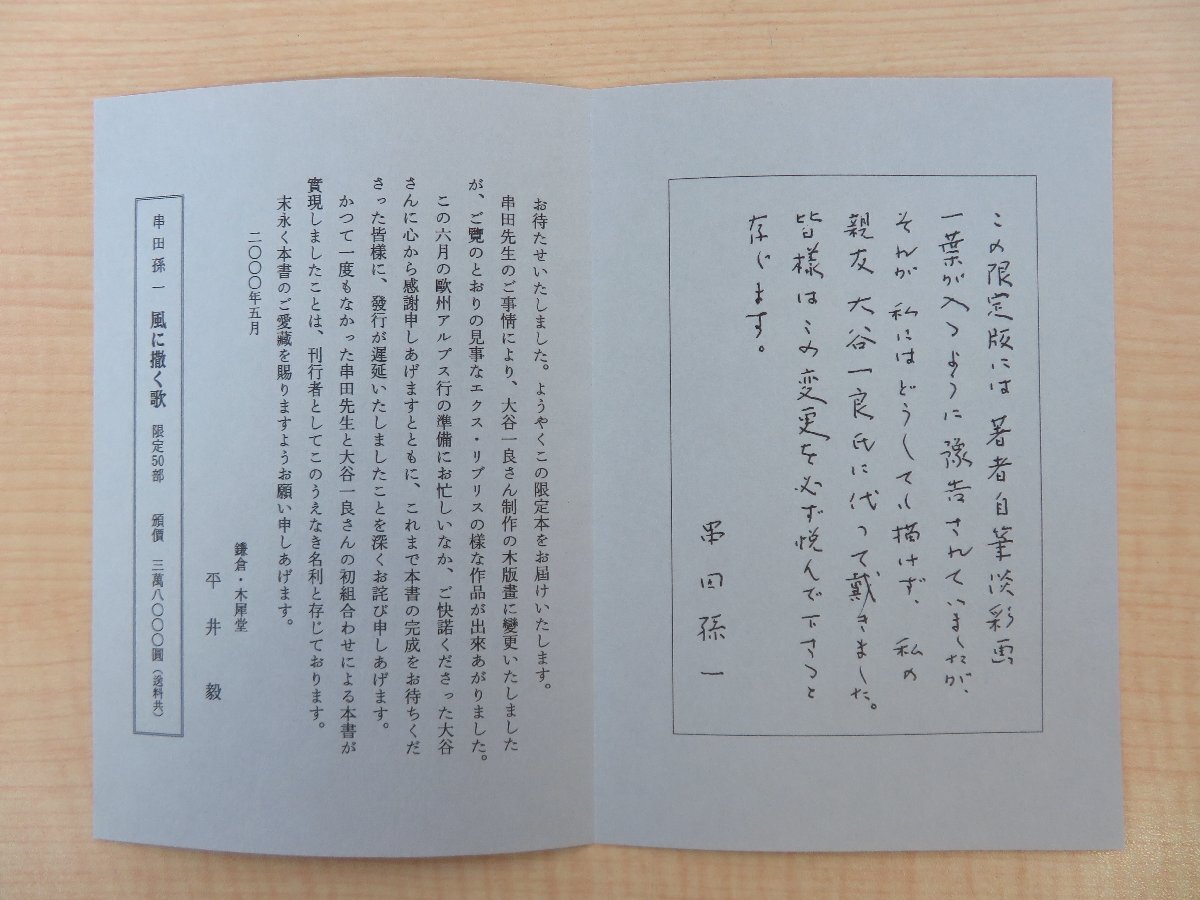 この限定版には 著者自筆淡彩画
一葉が入るように豫告されていましたが、
それが 私にはどうしても描けず、 私の
親友 大谷一良氏に代って戴きました。
皆様はこの変更を必ず悦んで下さると
存じます。
串田孫一
お待たせいたしました。ようやくこの限定本をお届けいたします。
串田先生のご事情により、大谷一良さん制作の木版畫に變更いたしました
が、ご覽のとおりの見事なエクス・リブリスの様な作品が出來あがりました。
この六月の歐州アルプス行の準備にお忙しいなか、ご快諾くださった大谷
さんに心から感謝申しあげますとともに、これまで本書の完成をお待ちくだ
さった皆様に、發行が遲延いたしましたことを深くお詫び申しあげます。
かつて一度もなかった串田先生と大谷一良さんの初組合わせによる本書が
實現しましたことは、刊行者としてこのうえなき名利と存じております。
末永く本書のご愛藏を賜りますようお願い申しあげます。
二〇〇〇年五月
鎌倉・木犀堂
平井 毅
串田孫一 風に撒く歌 限定50部 頒價 三萬八〇〇〇圓(送料共)